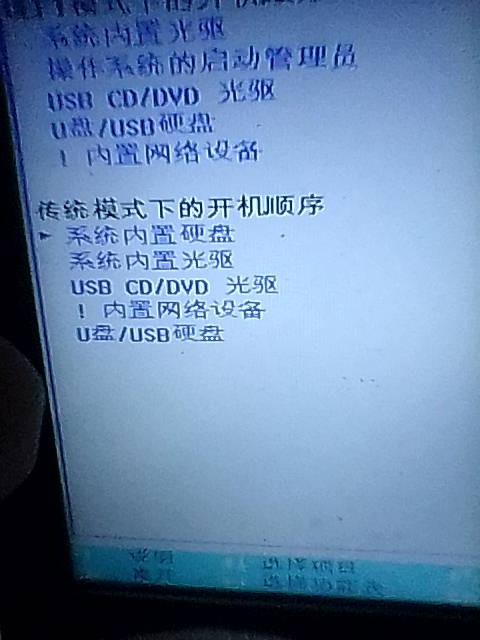 模式下的开机顺序
系统内置光驱
操作系统的启动管理员
USB CD/DVD 光驱
U盘/USB硬盘
! 内置网络设备
传统模式下的开机顺序
► 系统内置硬盘
系统内置光驱
USB CD/DVD 光驱
! 内置网络设备
U盘/USB硬盘
说明 选择项目